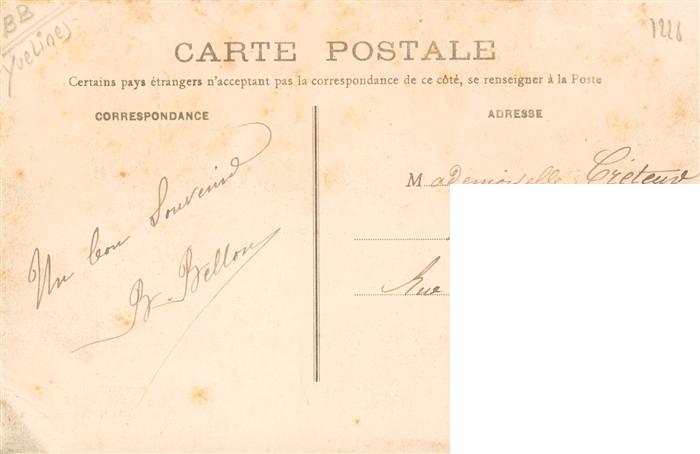 BB
Yvelines
1228
CARTE POSTALE
Certains pays étrangers n'acceptant pas la correspondance de ce côté, se renseigner à la Poste
CORRESPONDANCE
ADRESSE
Un bon Souvenir
B. Bellon
Mademoiselle Créteur
Rue